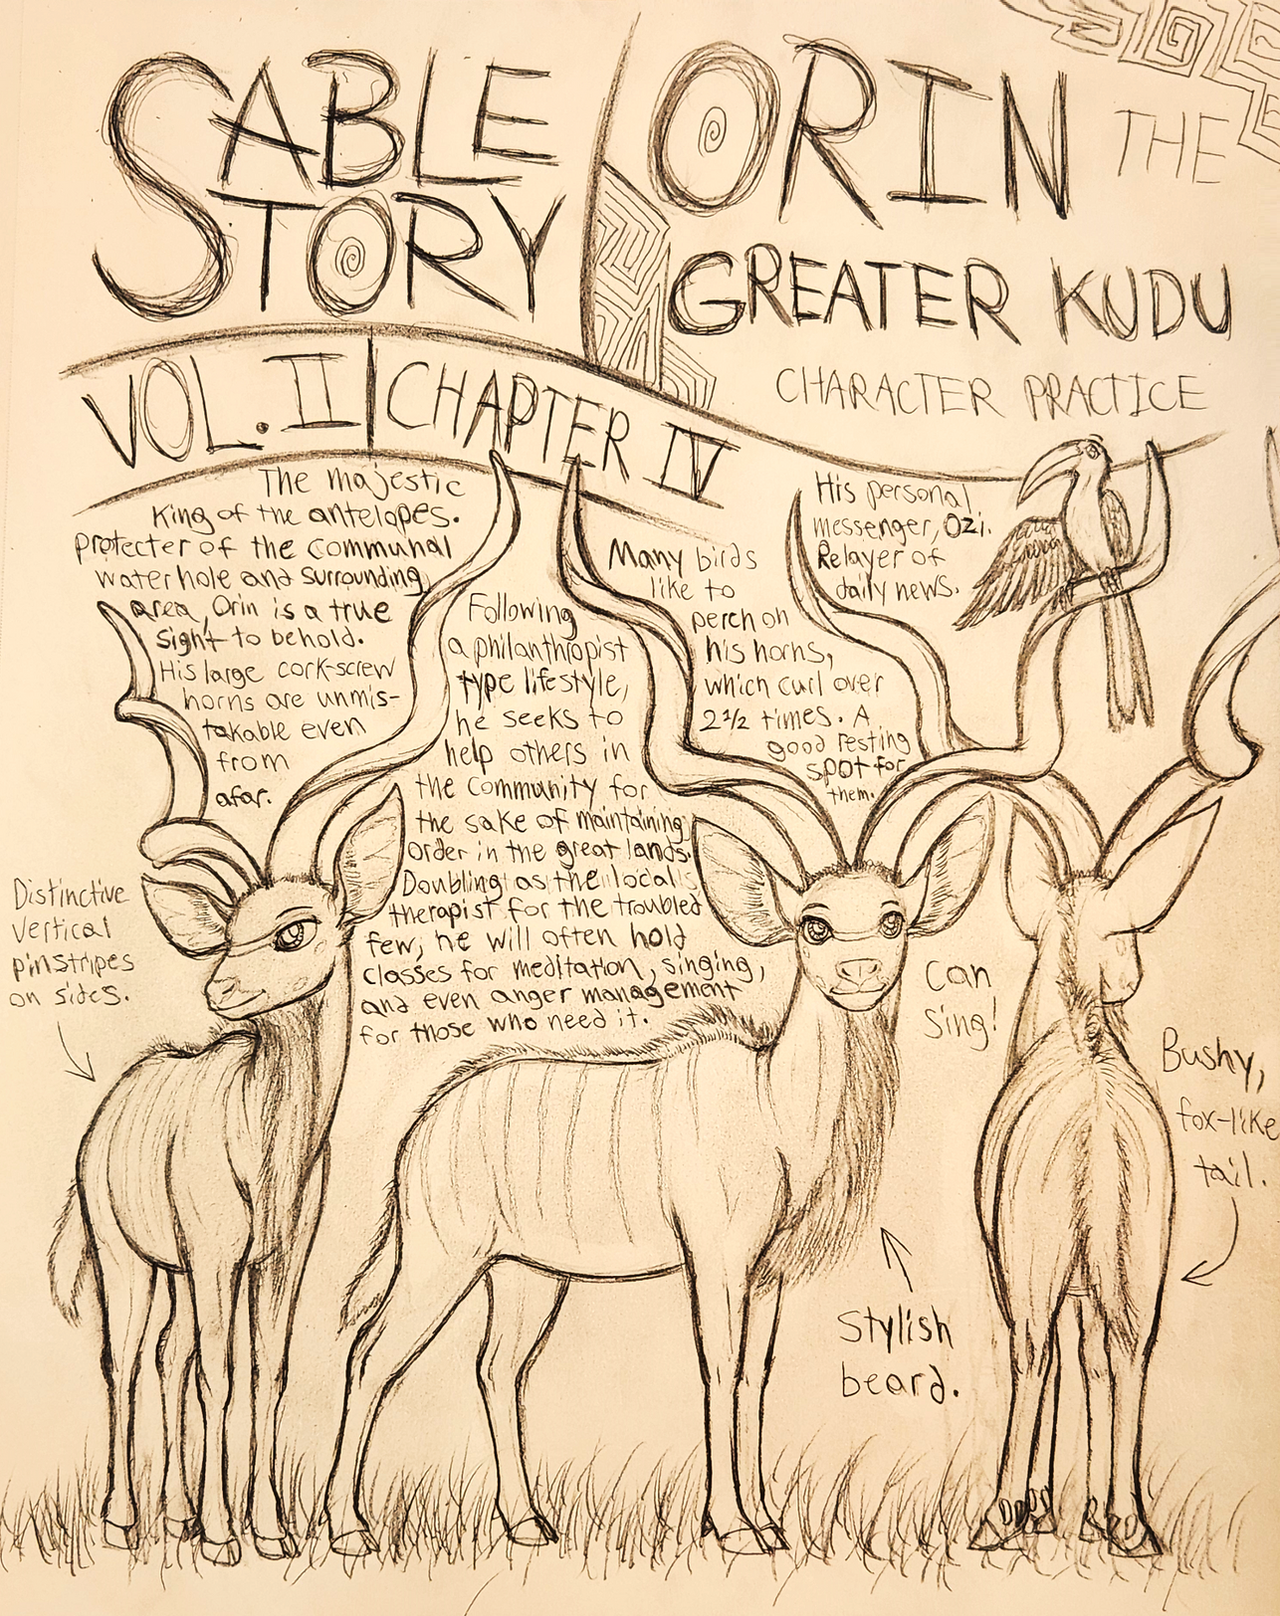 SABLE
STORY
ORIN THE
GREATER KUDU
CHARACTER PRACTICE
VOL. II | CHAPTER IV
The majestic
King of the antelopes.
Protecter of the communal
waterhole and surrounding
area, Orin is a true
sight to behold.
His large cork-screw
horns are unmis-
takable even
from
afar.
Following
a philanthropist
type lifestyle,
he seeks to
help others in
the community for
the sake of maintaining
order in the great lands.
Doubling as the local
therapist for the troubled
few, he will often hold
classes for meditation, singing,
and even anger management
for those who need it.
Many birds
like to
perch on
his horns,
which curl over
2 1/2 times. A
good resting
spot for
them.
His personal
messenger, Ozi.
Relayer of
daily news.
Distinctive
vertical
pinstripes
on sides.
Can
sing!
Bushy,
fox-like
tail.
Stylish
beard.